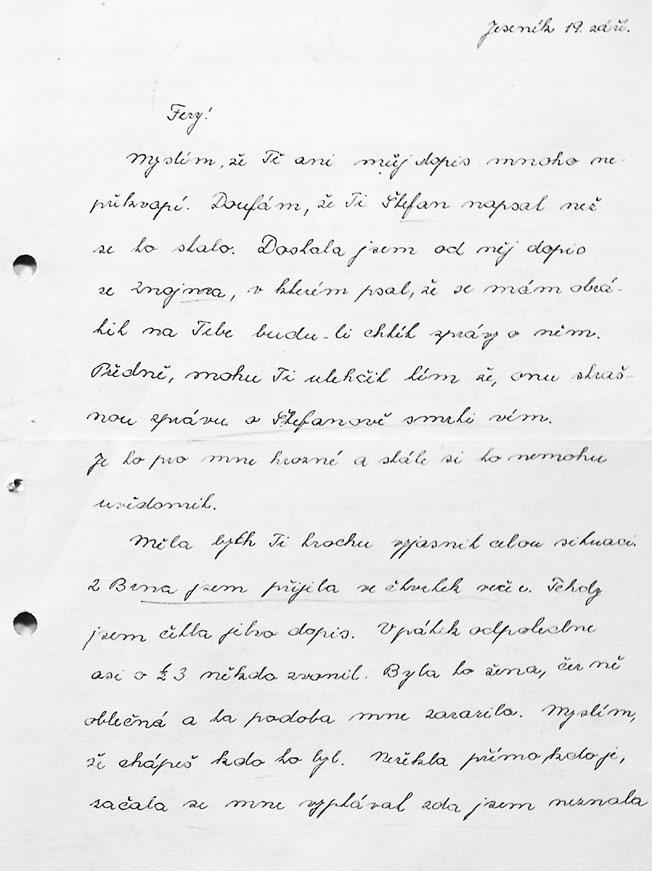 Jeseník 19. září.
Fery!
Myslím, že Tě ani můj dopis mnoho ne-
překvapí. Doufám, že Ti Štefan napsal než
se to stalo. Dostala jsem od něj dopis
ze Znojma, v kterém psal, že se mám obrá-
tit na Tebe budu-li chtít zprávy o něm.
Předně, mohu Ti ulehčit tím že, onu straš-
nou zprávu o Štefanově smrti vím.
Je to pro mne hrozné a stále si to nemohu
uvědomit.
Měla bych Ti trochu vyjasnit celou situaci.
Z Brna jsem přijela ve čtvrtek večer. Tehdy
jsem četla jeho dopis. V pátek odpoledne
asi o ½ 3 někdo zvonil. Byla to žena, čer ně
oblečná a ta podoba mne zarazila. Myslím,
že chápeš kdo to byl. Neřekla přímo kdo je,
začala se mne vyptávat zda jsem neznala